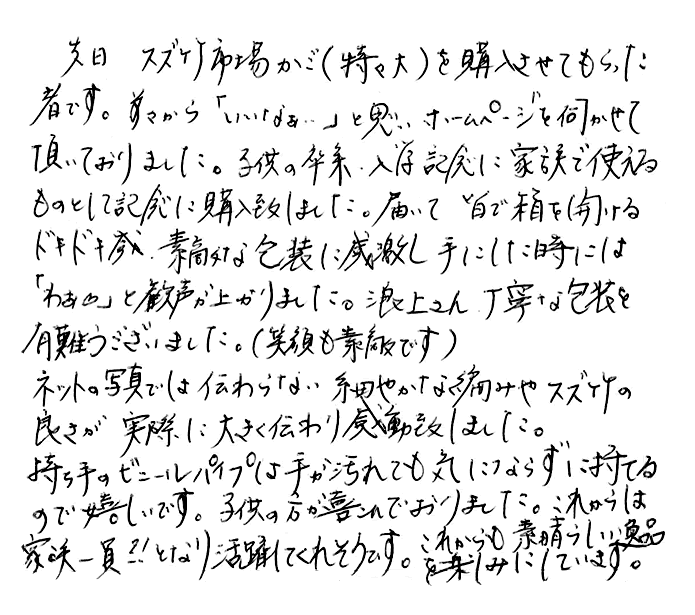 先日 スズ竹市場かご(特々大)を購入させてもらった
者です。前々から「いいなぁ…」と思い、ホームページを伺わせて
頂いておりました。子供の卒業、入学記念に家族で使える
ものとして記念に購入致しました。届いて 皆で箱を開ける
ドキドキ感、素敵な包装に感激し 手にした時には
「わぁぁ」と歓声が上がりました。浪上さん、丁寧な包装を
有難うございました。(笑顔も素敵です)
ネットの写真では伝わらない 細やかな編みやスズ竹の
良さが 実際に大きく伝わり感動致しました。
持ち手のビニールパイプは手が汚れても気にならずに持てる
ので嬉しいです。子供の方が喜んでおりました。これからは
家族一員!!となり活躍してくれそうです。これからも素晴らしい逸品
を楽しみにしています。